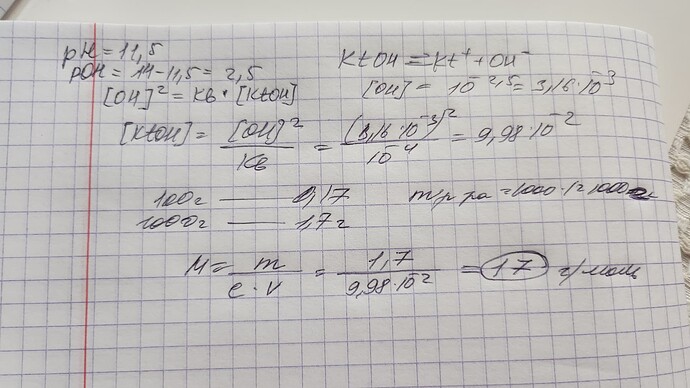 pH = 11,5
pOH = 14-11,5 = 2,5
[OH]² = Kв · [KtOH]
KtOH = Kt⁺ + OH⁻
[OH] = 10⁻²,⁵ = 3,16·10⁻³
[KtOH] = [OH]²/Kв = (3,16·10⁻³)²/10⁻⁴ = 9,98·10⁻²
100г — 0,17
1000г — 1,7г
m р-ра = 1000·1 = 1000
M = m/c·v = 1,7/9,98·10⁻² = 17 г/моль